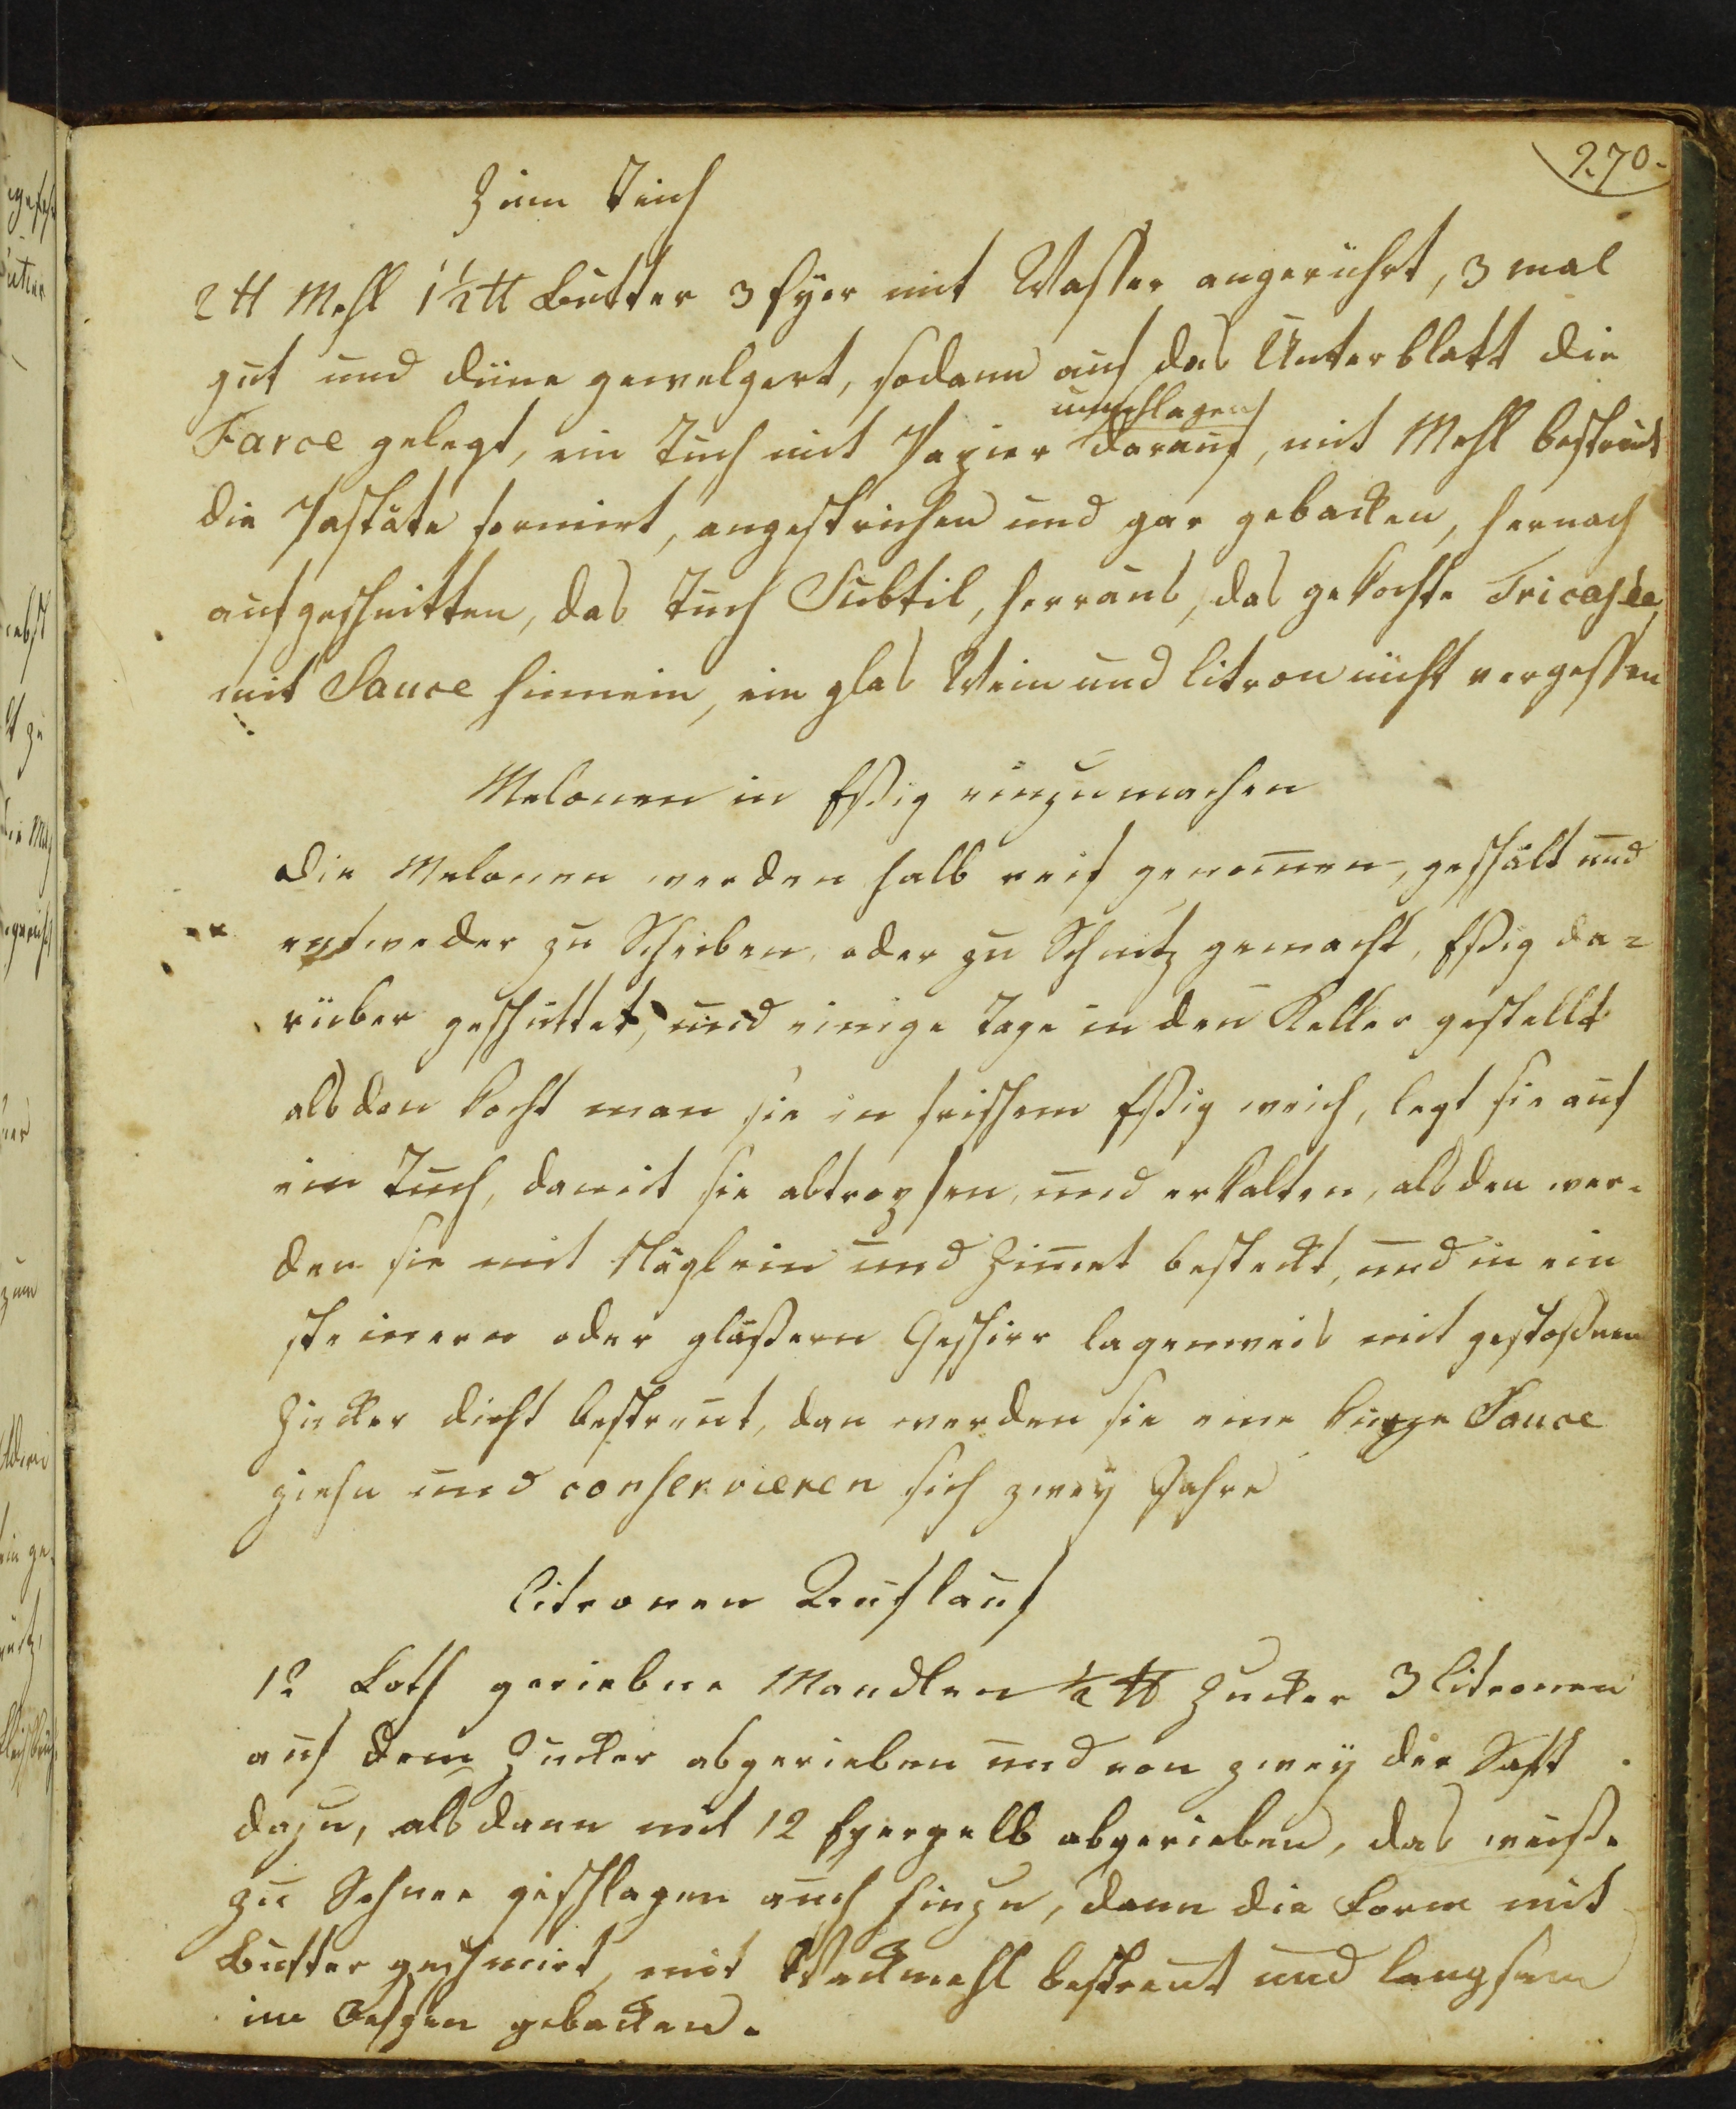 270.
Zum Teich
2 ℔ Mehl 1½ ℔ Butter 3 Eyer mit Wasser angerührt, 3 mal
gut und düne gewelgert, sodann auf das Unterblatt die
umschlagen
Farce gelegt, ein Tuch mit Papier darauf, mit Mehl bestreut
die Pastäte formirt, angestrichen und gar gebacken, hernach
aufgeschnitten, das Tuch Subtil, herraus, das gekochte Fricasée
mit Sauce hinnein, ein glas Wein und Citron nicht vergessen
Melonen in Eßig einzumachen
Die Melonen werden halb reif genom̄en, geschält und
entweder zu Scheiben, oder zu Schnitz gemacht, Eßig da=
rüber geschüttet, und einige Tage in den Keller gestellt
alsden kocht man sie in frischem Eßig weich, legt sie auf
ein Tuch, damit sie abtropfen, und erkalten, alsden wer-
den sie mit Näglein und Zim̄et bestekt, und in ein
steinern oder gläßern Geschirr lagenweis mit gestoßnem
Zucker dicht bestreut, dan werden sie eine kurze Sauce
ziehn und conservieren sich zwey Jahre
Citronen Auflauf
12 Loth geriebne Mandlen ½ ℔ Zucker 3 Citronen
auf dem Zucker abgerieben und von zwey der Saft
dazu, alsdann mit 12 Eyergelb abgerieben, das weiße
zu Schnee geschlagen auch hinzu, dann die Form mit
Butter geschmirt, mit Weckmehl bestreut und langsam
im gebacken.